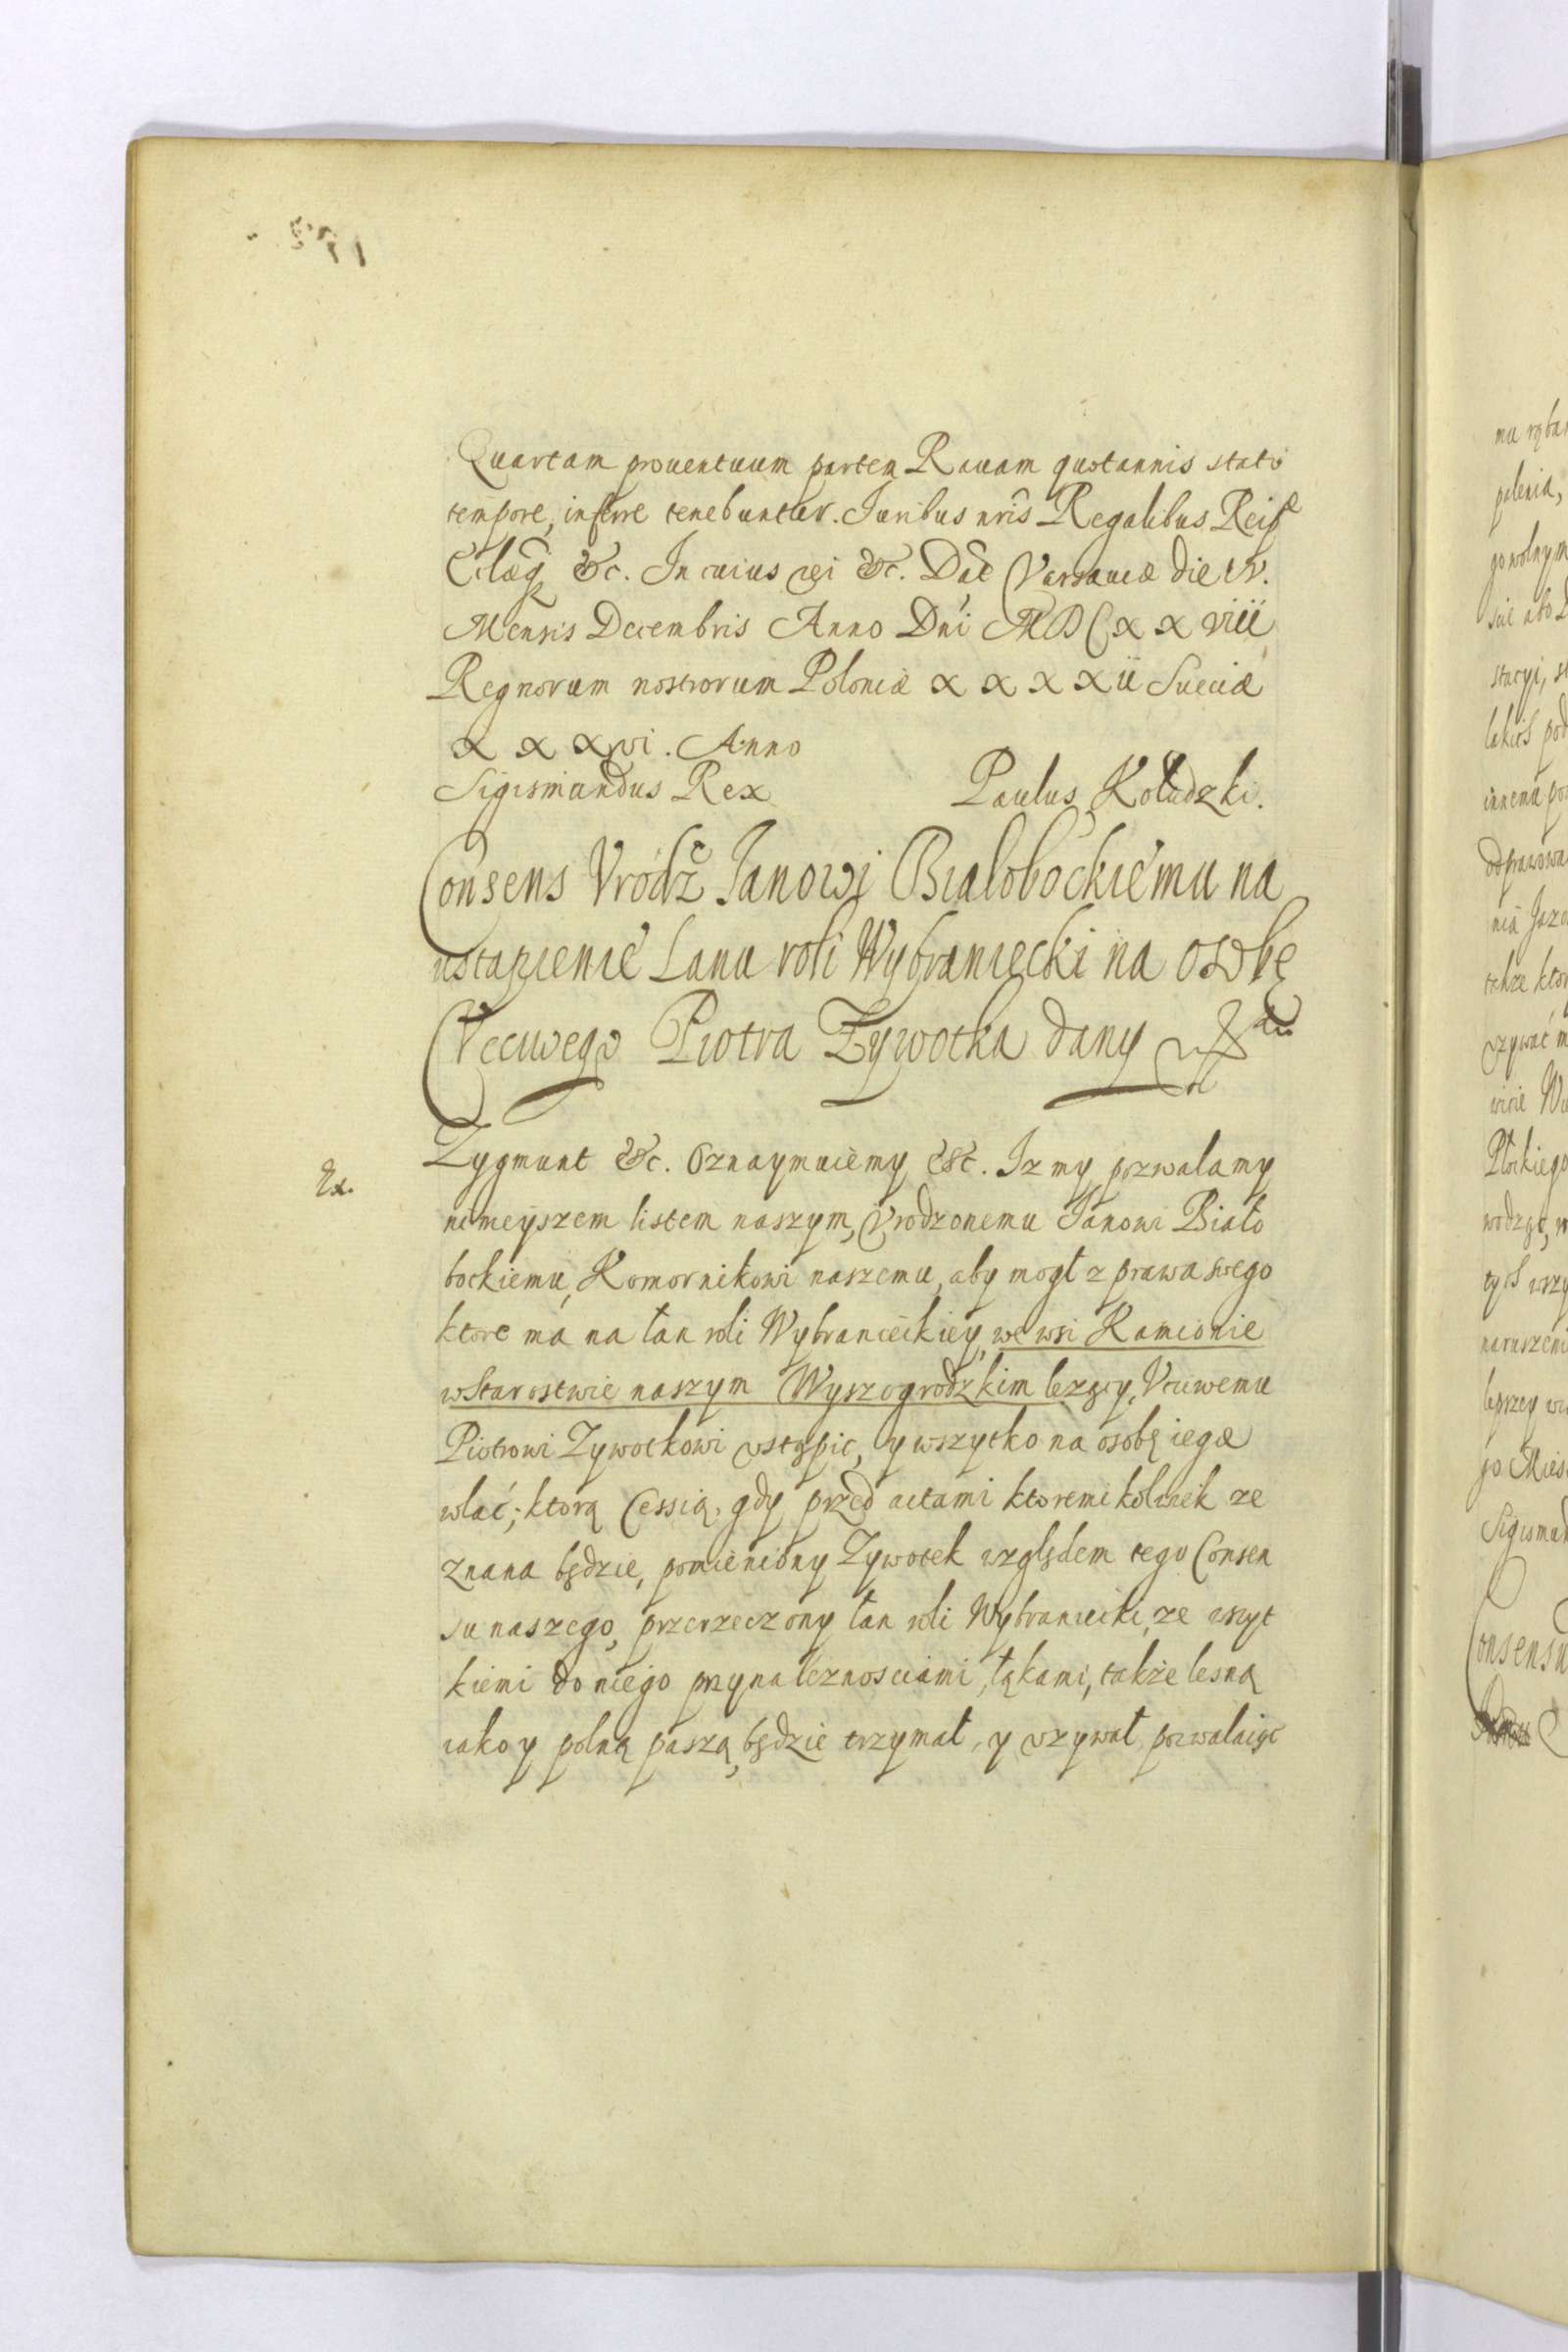 Quartam prouentuum partem Rauam quotannis stato
tempore, inferre tenebuntur. Iuribus nris Regalibus Reip
Ecclaeq &c. In cuius rei &c. Dat Varsauiæ die IV.
Mensis Decembris Anno Dni MDCxxviii
Regnorum nostrorum Poloniæ xxxxii Sueciæ
xxxvi. Anno
Sigismundus Rex Paulus Koludzki.
Consens Vrodz Ianowi Bialobockiemu na
ustąpienie Lanu roli Wybraniecki na osobę
Vccuwego Piotra Zywotka dany
Ex.
Zygmunt &c. Oznaymuiemy &c. Iz my pozwalamy
nimieyszem listem naszym, Vrodzonemu Ianowi Biało
bockiemu, Komornikowi naszemu, aby mogł z prawa swego
ktore ma na łan roli Wybranieckiey, we wsi Kamionie
w Starostwie naszym Wyszogrodzkim lezący, Vcciwemu
Piotrowi Zywotkowi vstąpic, y wszytko na osobę iego
wlać; ktorą Cessią, gdy przed actami ktoremikolwiek ze
znana będzie, pomieniony Zywotek względem tego Consen
su naszego, przerzeczony łan roli Wybraniecki, ze wszyt
kiemi do niego przynaleznosciami, łąkami, także lesną
iako y polną paszą, będzie trzymał, y vzywał, pozwalaiąc